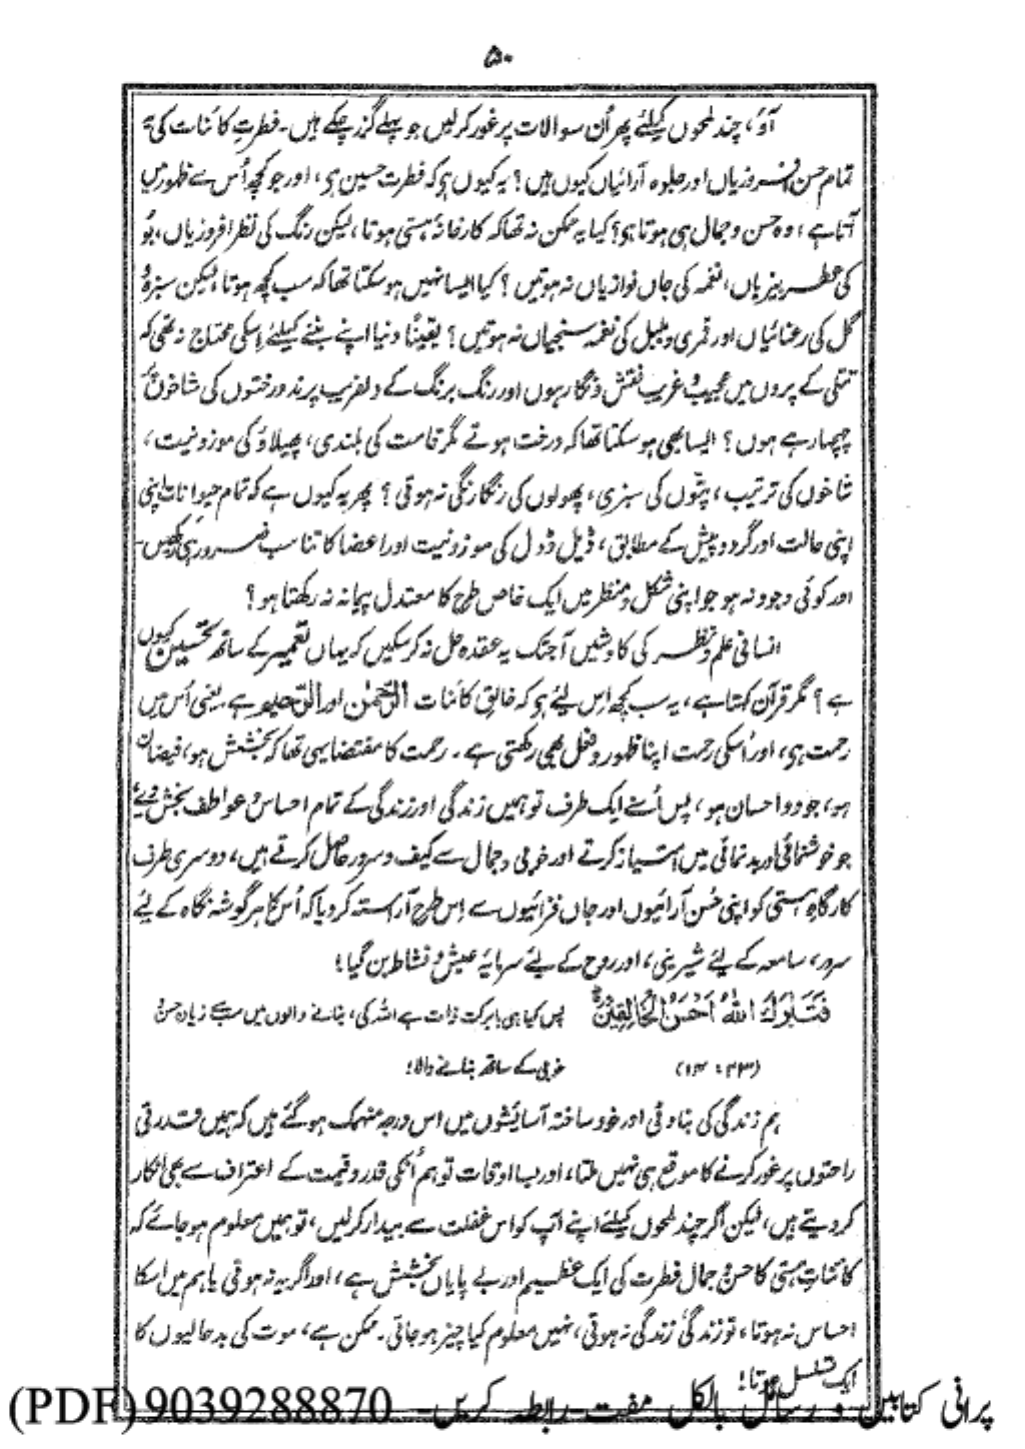 ۵۰
آؤ، چند لمحوں کیلئے پھر اُن سوالات پر غور کرلیں جو پہلے گزر چکے ہیں۔ فطرتِ کائنات کی یہ
تمام حسن افروزیاں اور جلوہ آرائیاں کیوں ہیں؟ یہ کیوں ہی کہ فطرت حسین ہی، اور جو کچھ اُس سے ظہور میں
آتا ہے، وہ حسن و جمال ہی ہوتا ہی؟ کیا یہ ممکن نہ تھا کہ کارخانۂ ہستی ہوتا، لیکن رنگ کی نظر افروزیاں، بُو
کی عطر بیزیاں، نغمہ کی جاں نوازیاں نہ ہوتیں؟ کیا ایسا نہیں ہوسکتا تھا کہ سب کچھ ہوتا، لیکن سبزہ و
گل کی رعنائیاں اور قمری و بلبل کی نغمہ سنجیاں نہ ہوتیں؟ یقیناً دنیا اپنے بننے کیلئے اِسکی محتاج نہ تھی کہ
تتلی کے پروں میں عجیب و غریب نقش و نگار ہوں اور رنگ برنگ کے دلفریب پرند درختوں کی شاخوں پر
چہچہا رہے ہوں؟ ایسا بھی ہوسکتا تھا کہ درخت ہوتے مگر قامت کی بلندی، پھیلاؤ کی موزونیت،
شاخوں کی ترتیب، پتّوں کی سبزی، پھولوں کی رنگارنگی نہ ہوتی؟ پھر یہ کیوں ہے کہ تمام حیوانات اپنی
اپنی حالت اور گرد و پیش کے مطابق، ڈیل ڈول کی موزونیت اور اعضا کا تناسب ضرور ہی رکھیں۔
اور کوئی وجود نہ ہو جو اپنی شکل و منظر میں ایک خاص طرح کا معتدل پیمانہ نہ رکھتا ہو؟
انسانی علم و نظر کی کاوشیں آجتک یہ عقدہ حل نہ کرسکیں کہ یہاں تعمیر کے ساتھ تحسین کیوں
ہے؟ مگر قرآن کہتا ہے، یہ سب کچھ اِس لیئے ہو کہ خالقِ کائنات الرّحمٰن اور الرّحیم ہے یعنی اُس میں
رحمت ہی، اور اُسکی رحمت اپنا ظہور و فعل بھی رکھتی ہے۔ رحمت کا مقتضا یہی تھا کہ بخشش ہو، فیضان
ہو، جود و احسان ہو، پس اُسنے ایک طرف تو ہمیں زندگی اور زندگی کے تمام احساس و عواطف بخش دیئے
جو خوشنمائی اور بدنمائی میں امتیاز کرتے اور خوبی و جمال سے کیف و سرور حاصل کرتے ہیں، دوسری طرف
کارگاہِ ہستی کو اپنی حُسن آرائیوں اور جاں فزائیوں سے اِس طرح آراستہ کردیا کہ اُس کا ہر گوشہ نگاہ کے لیئے
سرور، سامعہ کے لیئے شیرینی، اور روح کے لیئے سرمایۂ عیش و نشاط بن گیا!
فَتَبٰرَكَ اللهُ اَحْسَنُ الْخَالِقِیْنَ پس کیا ہی بابرکت ذات ہے اللہ کی، بنانے والوں میں سب سے زیادہ حسن و
(۲۳ : ۱۴) خوبی کے ساتھ بنانے والا!
ہم زندگی کی بناوٹی اور خود ساختہ آسایشوں میں اس درجہ منہمک ہوگئے ہیں کہ ہمیں قدرتی
راحتوں پر غور کرنے کا موقع ہی نہیں ملتا، اور بسا اوقات تو ہم اُنکی قدر و قیمت کے اعتراف سے بھی انکار
کردیتے ہیں، لیکن اگر چند لمحوں کیلئے اپنے آپ کو اس غفلت سے بیدار کرلیں، تو ہمیں معلوم ہوجائے کہ
کائناتِ ہستی کا حسن و جمال فطرت کی ایک عظیم اور بے پایاں بخشش ہے، اور اگر یہ نہ ہوتی یا ہم میں اسکا
احساس نہ ہوتا، تو زندگی زندگی نہ ہوتی، نہیں معلوم کیا چیز ہوجاتی۔ ممکن ہے، موت کی بدحالیوں کا
ایک تسلسل ہوتا!
پرانی کتابیں و رسائل بالکل مفت رابطہ کریں۔ 9039288870 (PDF)